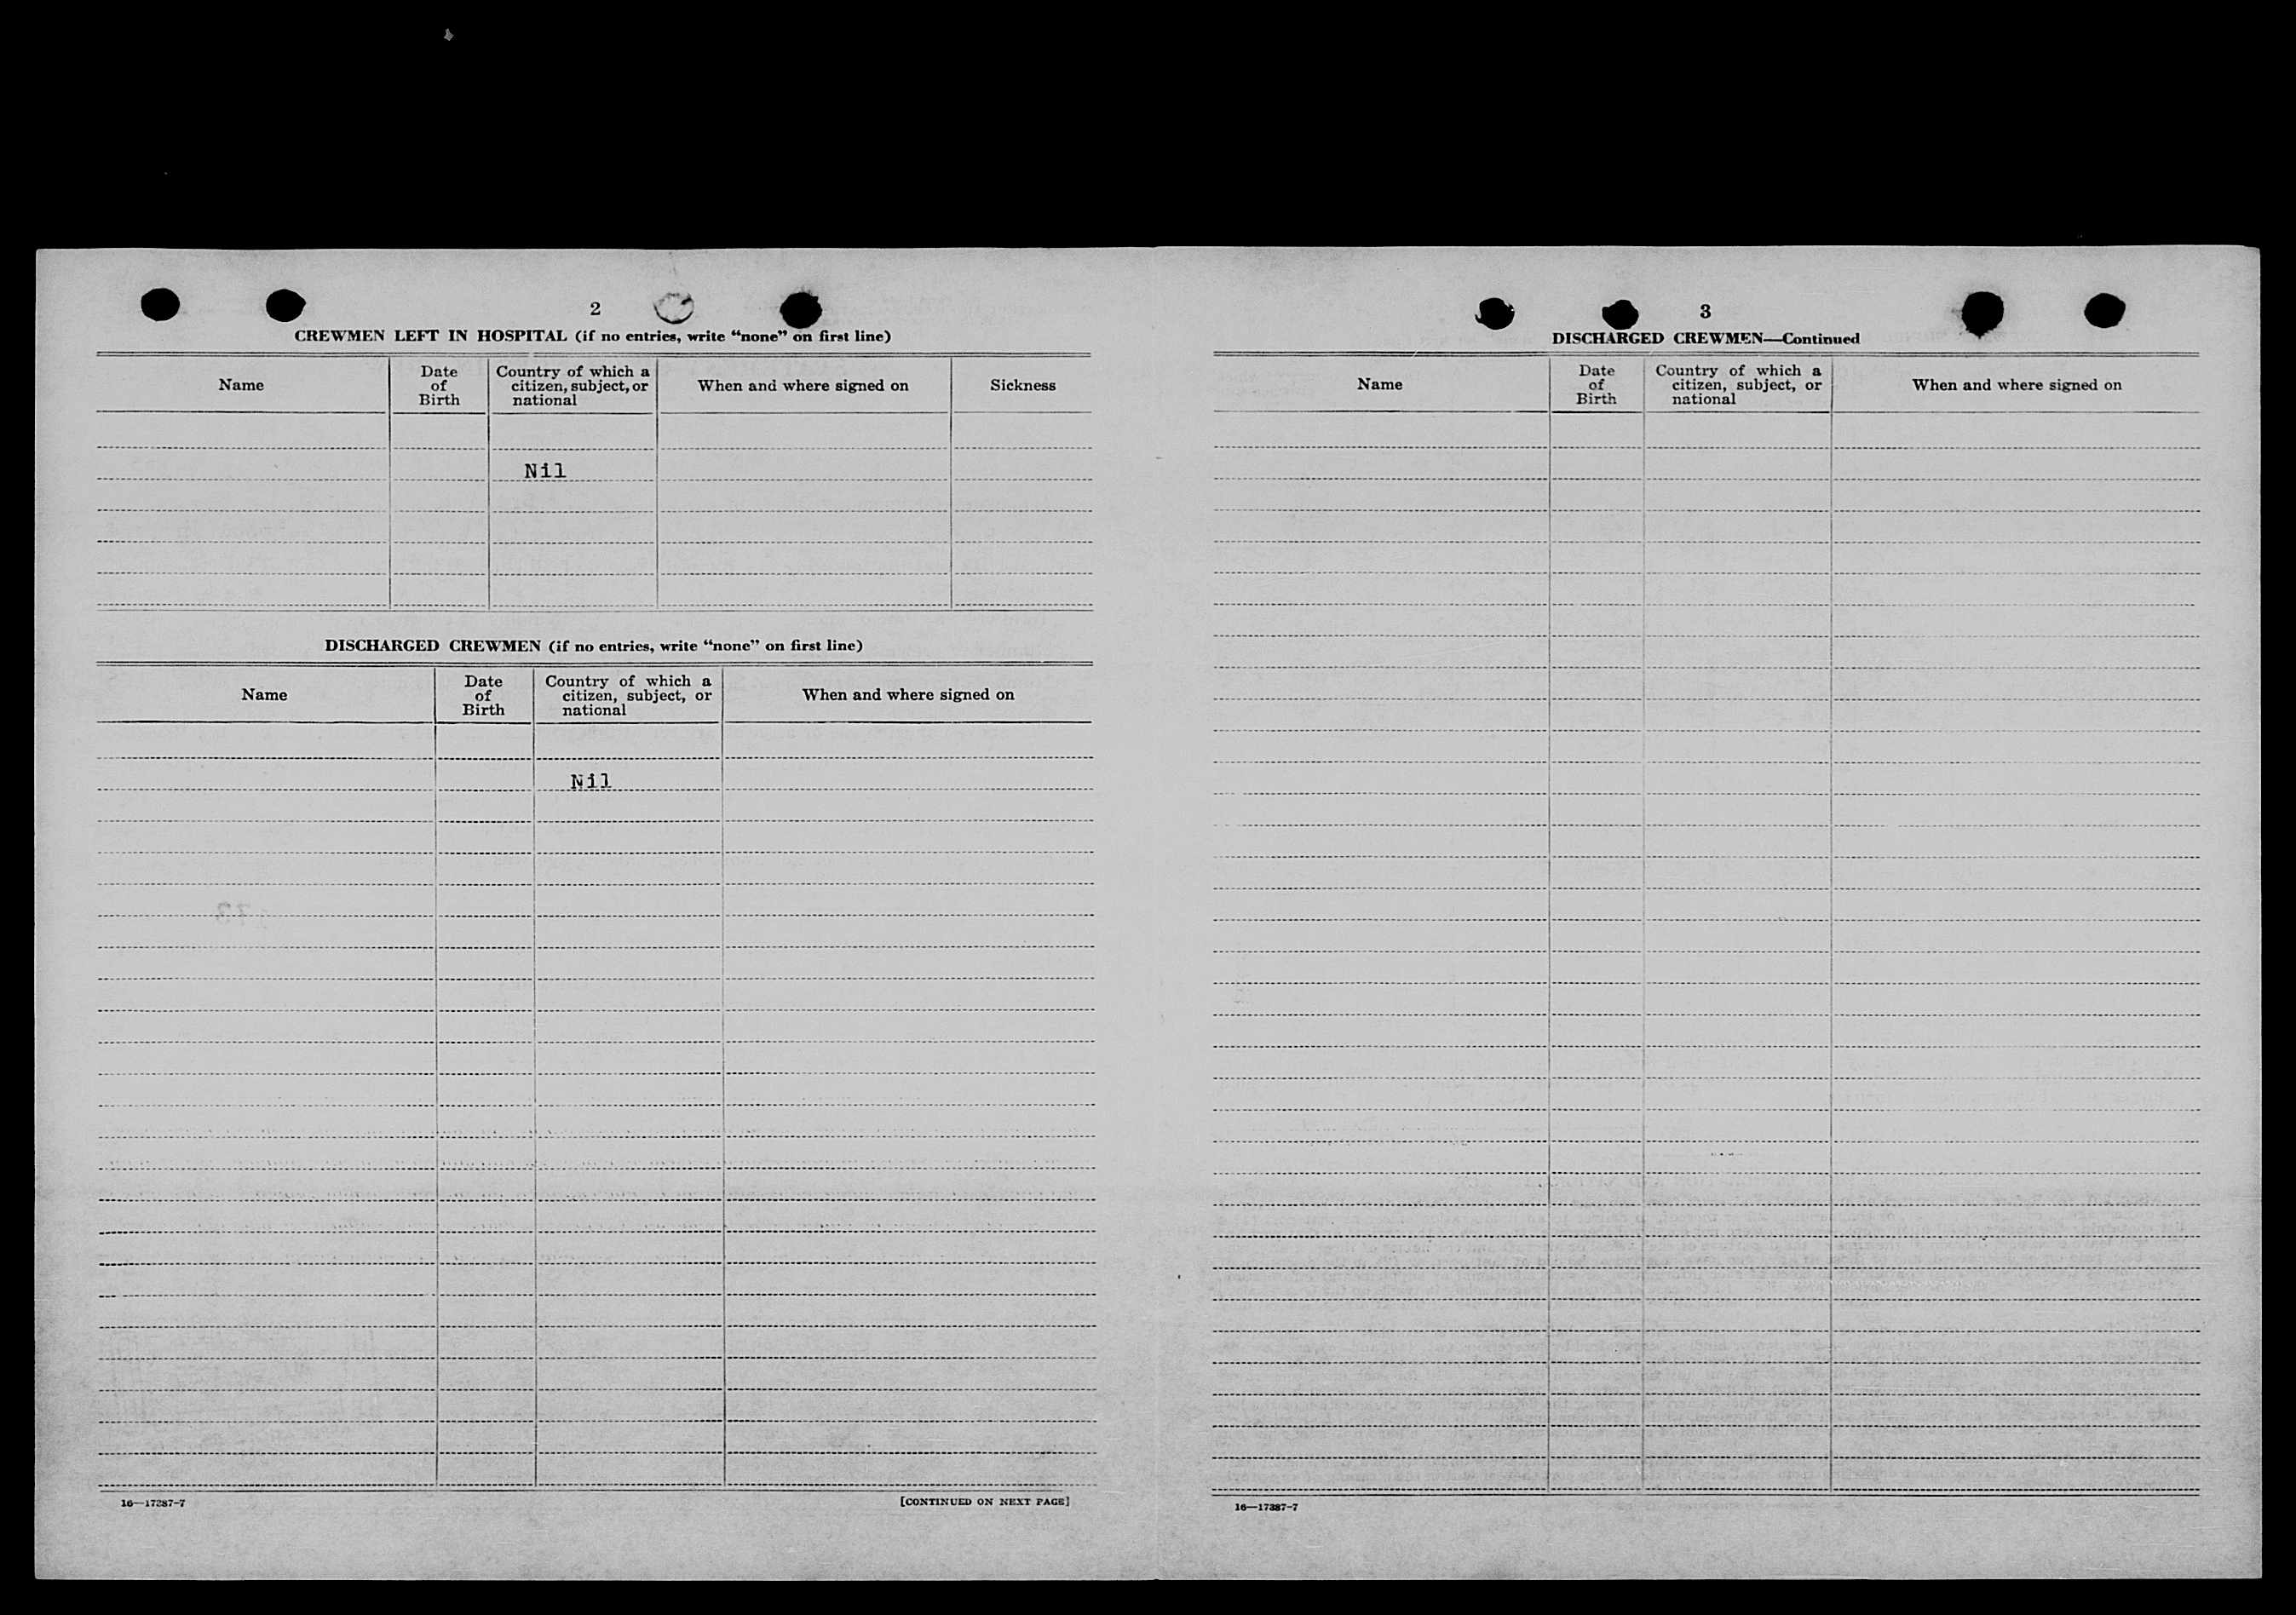 2
CREWMEN LEFT IN HOSPITAL (if no entries, write “none” on first line)
Name
Date of Birth
Country of which a citizen, subject, or national
When and where signed on
Sickness
Nil
DISCHARGED CREWMEN (if no entries, write “none” on first line)
Name
Date of Birth
Country of which a citizen, subject, or national
When and where signed on
Nil
16—17287-7
[CONTINUED ON NEXT PAGE]
3
DISCHARGED CREWMEN—Continued
Name
Date of Birth
Country of which a citizen, subject, or national
When and where signed on
16—17287-7